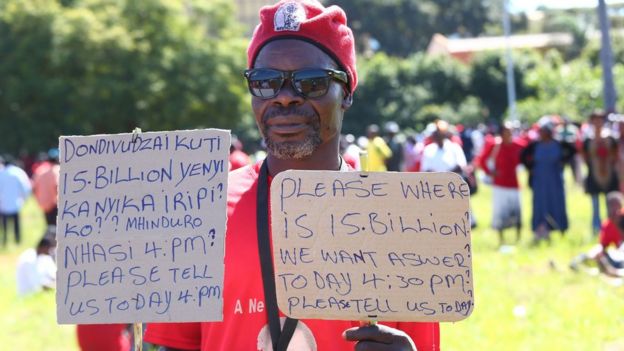 DONDIVUDZAI KUTI
15.BILLION YENYI
KANYIKA IRIPI?
KO?? MHINDURO
NHASI 4.PM?
PLEASE TELL
US TODAY 4:PM
PLEASE WHERE
IS 15.BILLION?
WE WANT ASWER?
TODAY 4:30 PM?
PLEASE TELL US TODAY
A Ne